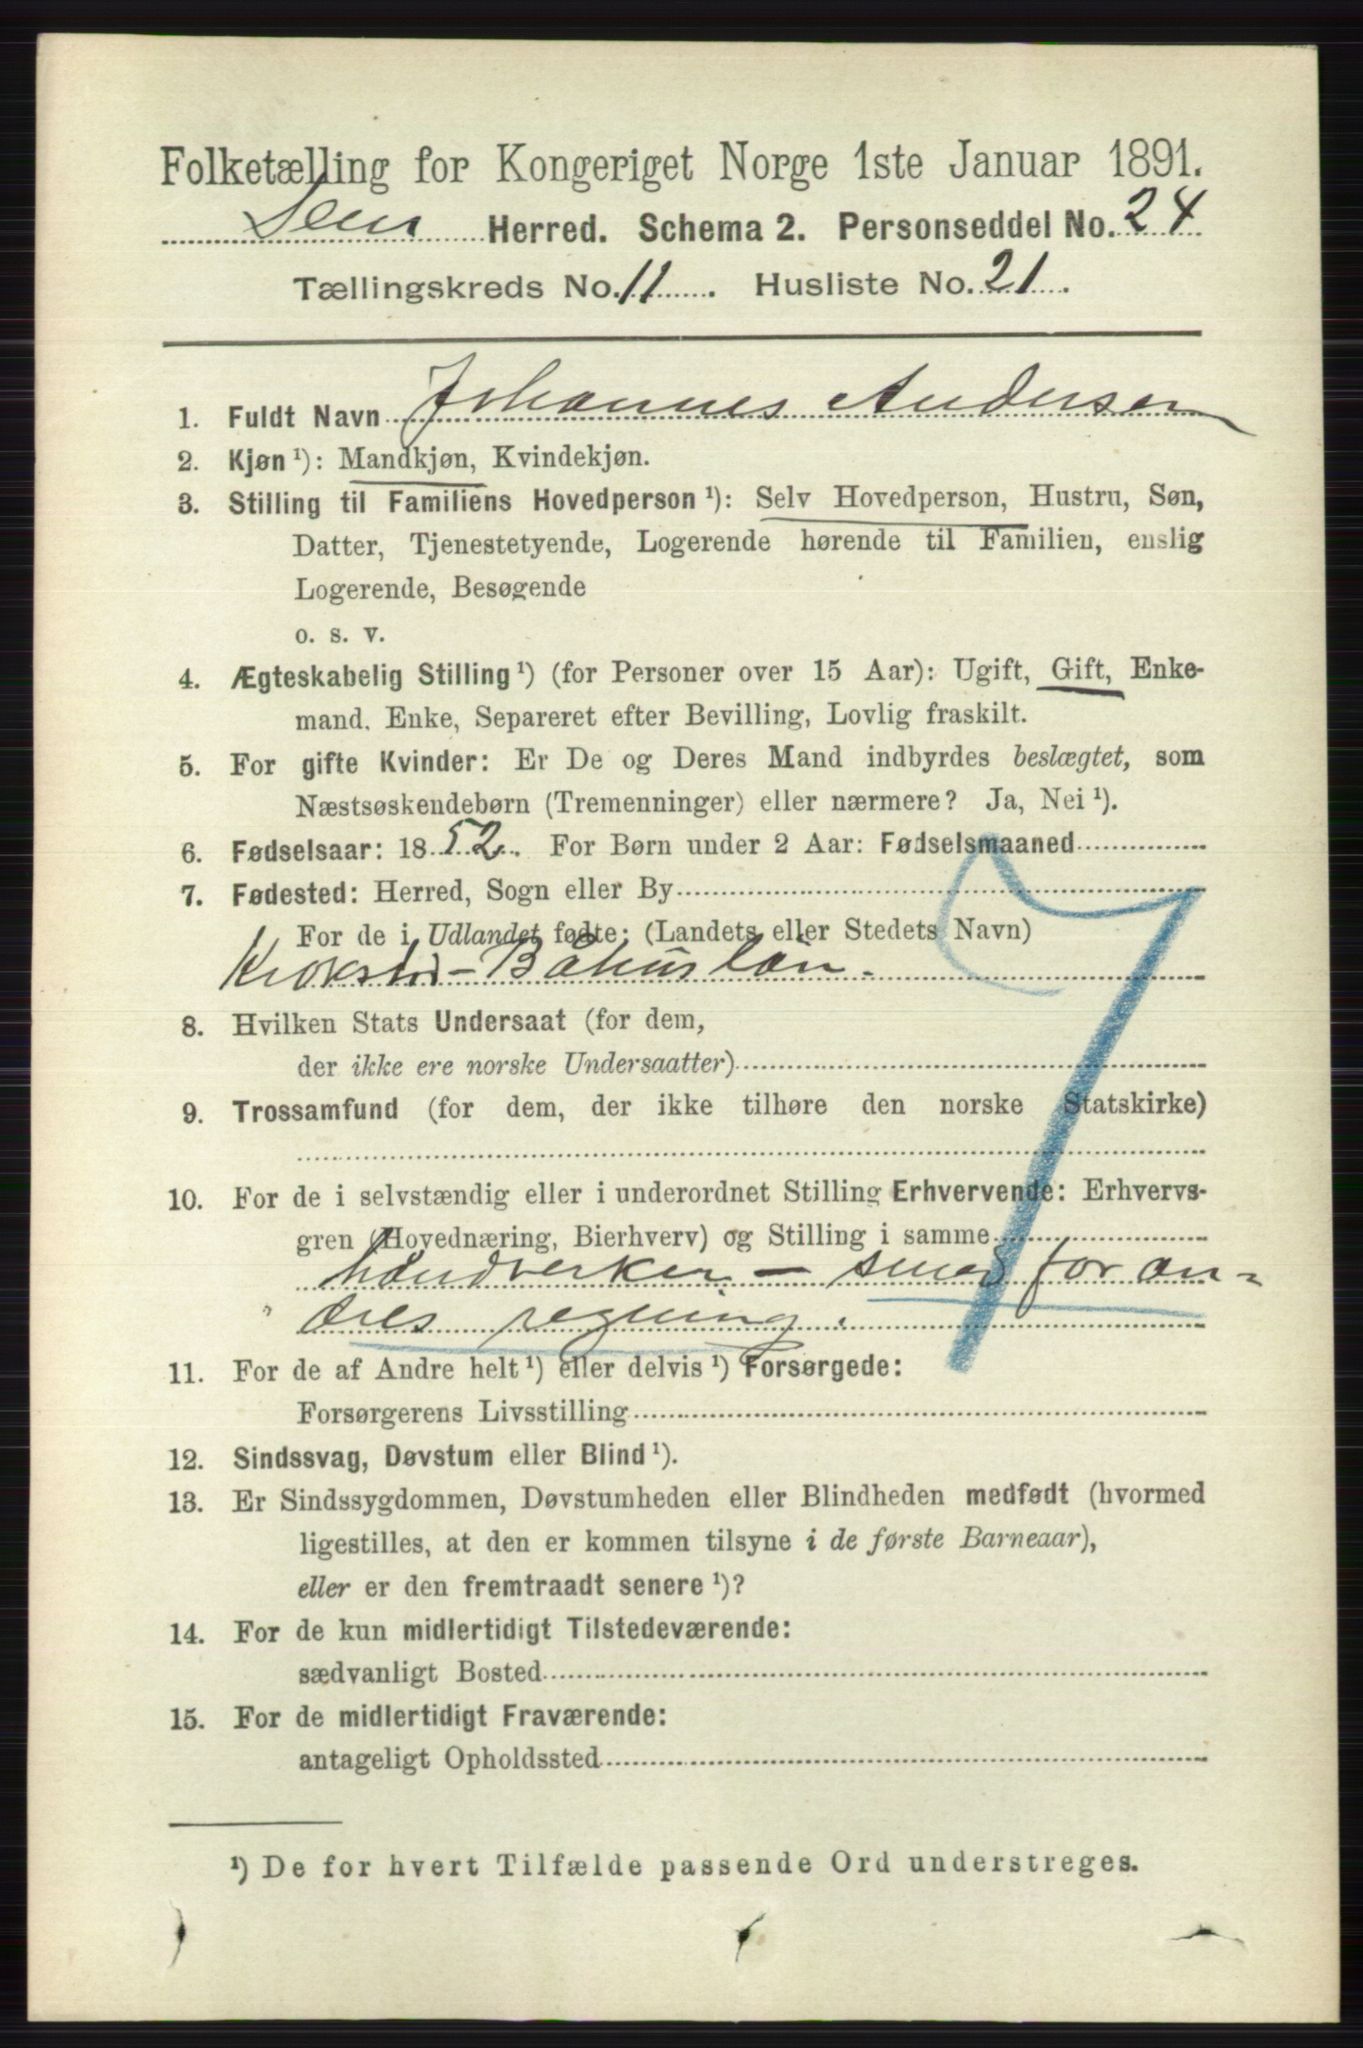 Folketælling for Kongeriget Norge 1ste Januar 1891.
Sem Herred. Schema 2. Personseddel No. 24
Tællingskreds No. 11. Husliste No. 21.
1. Fuldt Navn Johannes Andersen
2. Kjøn ¹): Mandkjøn, Kvindekjøn.
3. Stilling til Familiens Hovedperson ¹): Selv Hovedperson, Hustru, Søn,
Datter, Tjenestetyende, Logerende hørende til Familien, enslig
Logerende, Besøgende
o. s. v.
4. Ægteskabelig Stilling ¹) (for Personer over 15 Aar): Ugift, Gift, Enke-
mand, Enke, Separeret efter Bevilling, Lovlig fraskilt.
5. For gifte Kvinder: Er De og Deres Mand indbyrdes beslægtet, som
Næstsøskendebørn (Tremenninger) eller nærmere? Ja, Nei ¹).
6. Fødselsaar: 1852. For Børn under 2 Aar: Fødselsmaaned
7. Fødested: Herred, Sogn eller By
For de i Udlandet fødte: (Landets eller Stedets Navn)
- Båhuslän.
8. Hvilken Stats Undersaat (for dem,
der ikke ere norske Undersaatter)
9. Trossamfund (for dem, der ikke tilhøre den norske Statskirke)
10. For de i selvstændig eller i underordnet Stilling Erhvervende: Erhvervs-
gren (Hovednæring, Bierhverv) og Stilling i samme
håndverker - smed for an-
dres regning.
7
11. For de af Andre helt ¹) eller delvis ¹) Forsørgede:
Forsørgerens Livsstilling
12. Sindssvag, Døvstum eller Blind ¹).
13. Er Sindssygdommen, Døvstumheden eller Blindheden medfødt (hvormed
ligestilles, at den er kommen tilsyne i de første Barneaar),
eller er den fremtraadt senere ¹)?
14. For de kun midlertidigt Tilstedeværende:
sædvanligt Bosted
15. For de midlertidigt Fraværende:
antageligt Opholdssted
¹) De for hvert Tilfælde passende Ord understreges.